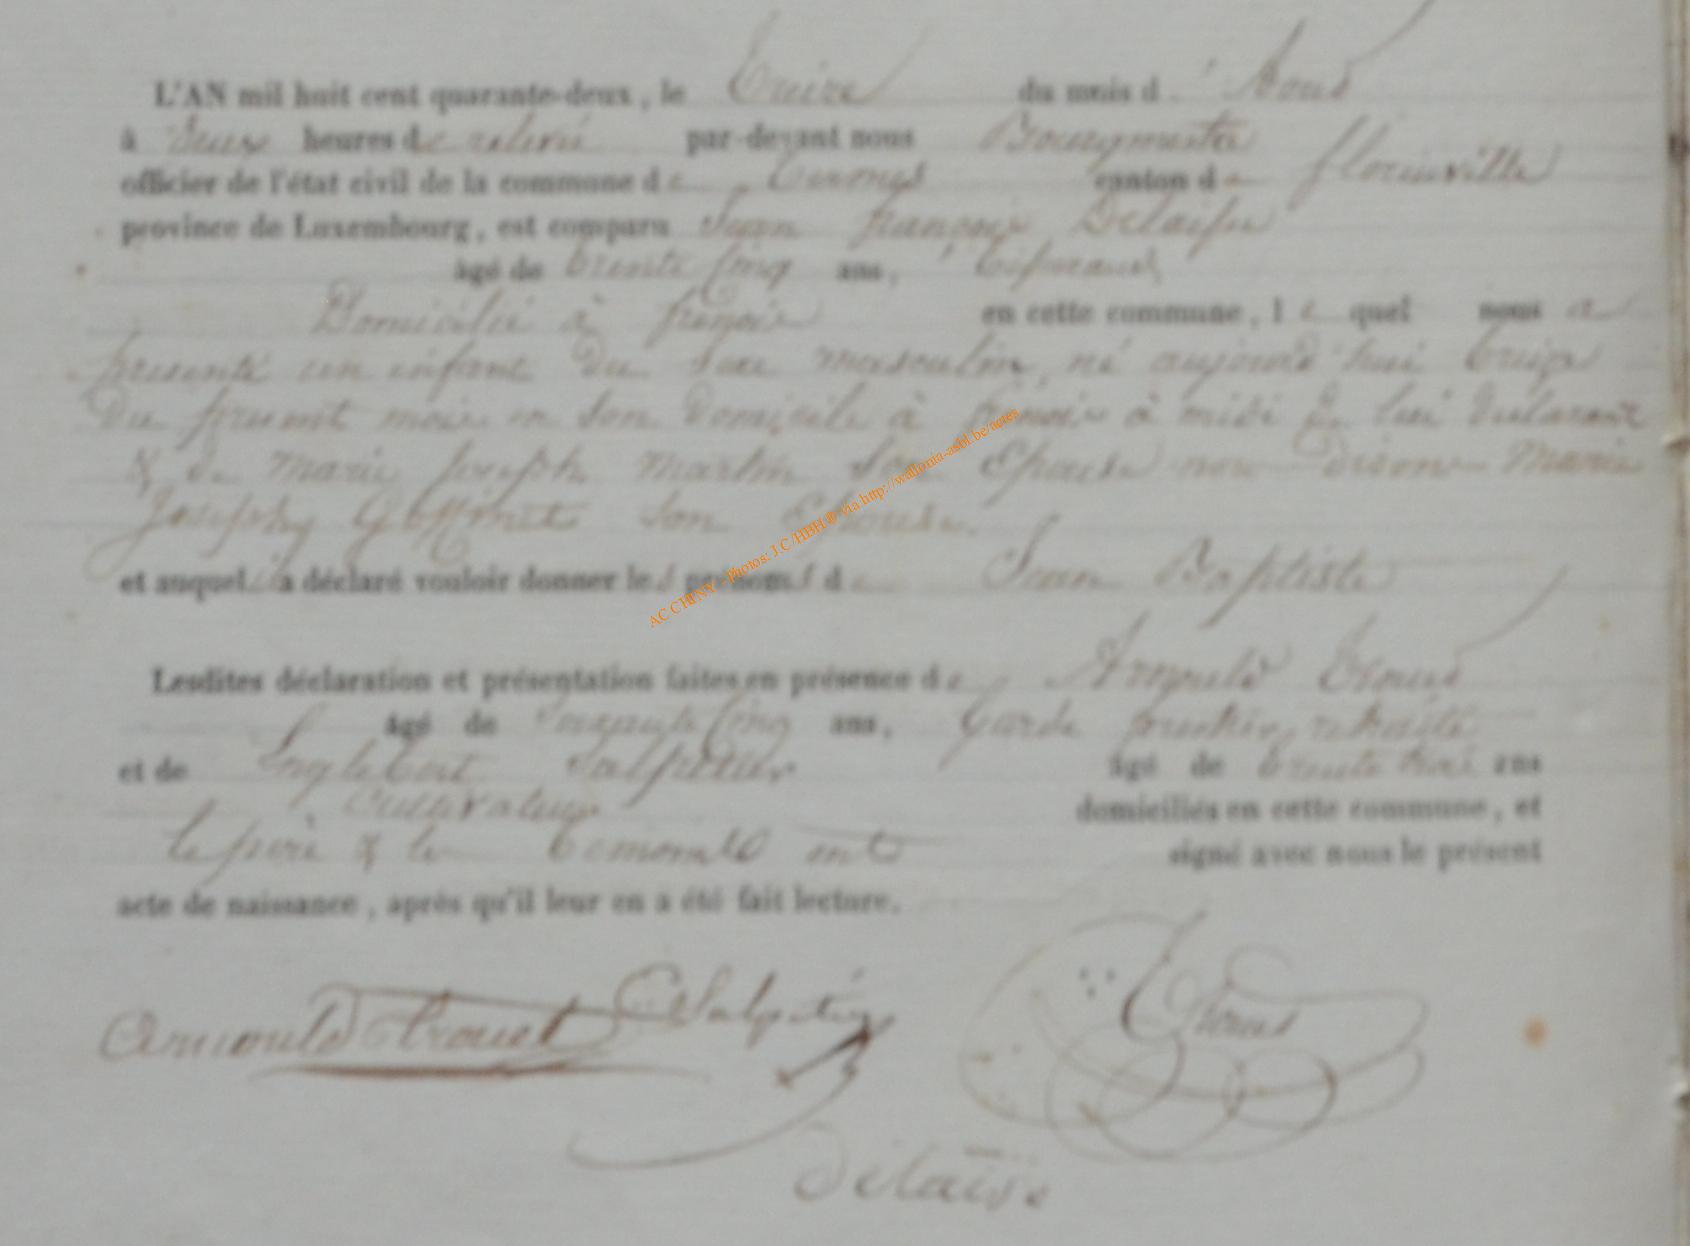 L'AN mil huit cent quarante-deux, le treize du mois d'Aout
à deux heures de relevée par-devant nous Bourgmestre
officier de l'état civil de la commune de canton de florenville
province de Luxembourg, est comparu Jean françois Delaisse
âgé de trente cinq ans, tisserand
Domicilié à frenois en cette commune, lequel nous a
presenté un enfant du sexe masculin, né aujourd'hui treize
du present mois en son domicile à frenois à midi de lui declarant
& de marie joseph martin son Epouse nou disons Marie
Josephe Goffinet son Epouse.
et auquel il a déclaré vouloir donner les prénoms de Jean Baptiste
Lesdites déclaration et présentation faites en présence de Arnould
âgé de cinq ans, Garde forestier retraité
et de Inglebert Salpetier âgé de trente trois ans
Cultivateur domiciliés en cette commune, et
le père & les temoins ont signé avec nous le présent
acte de naissance, après qu'il leur en a été fait lecture.
Arnould E Salpetier
Delaisse
AC CHINY - Photos: J.C/HBH@-via http://wallonia-asbl.be/actes